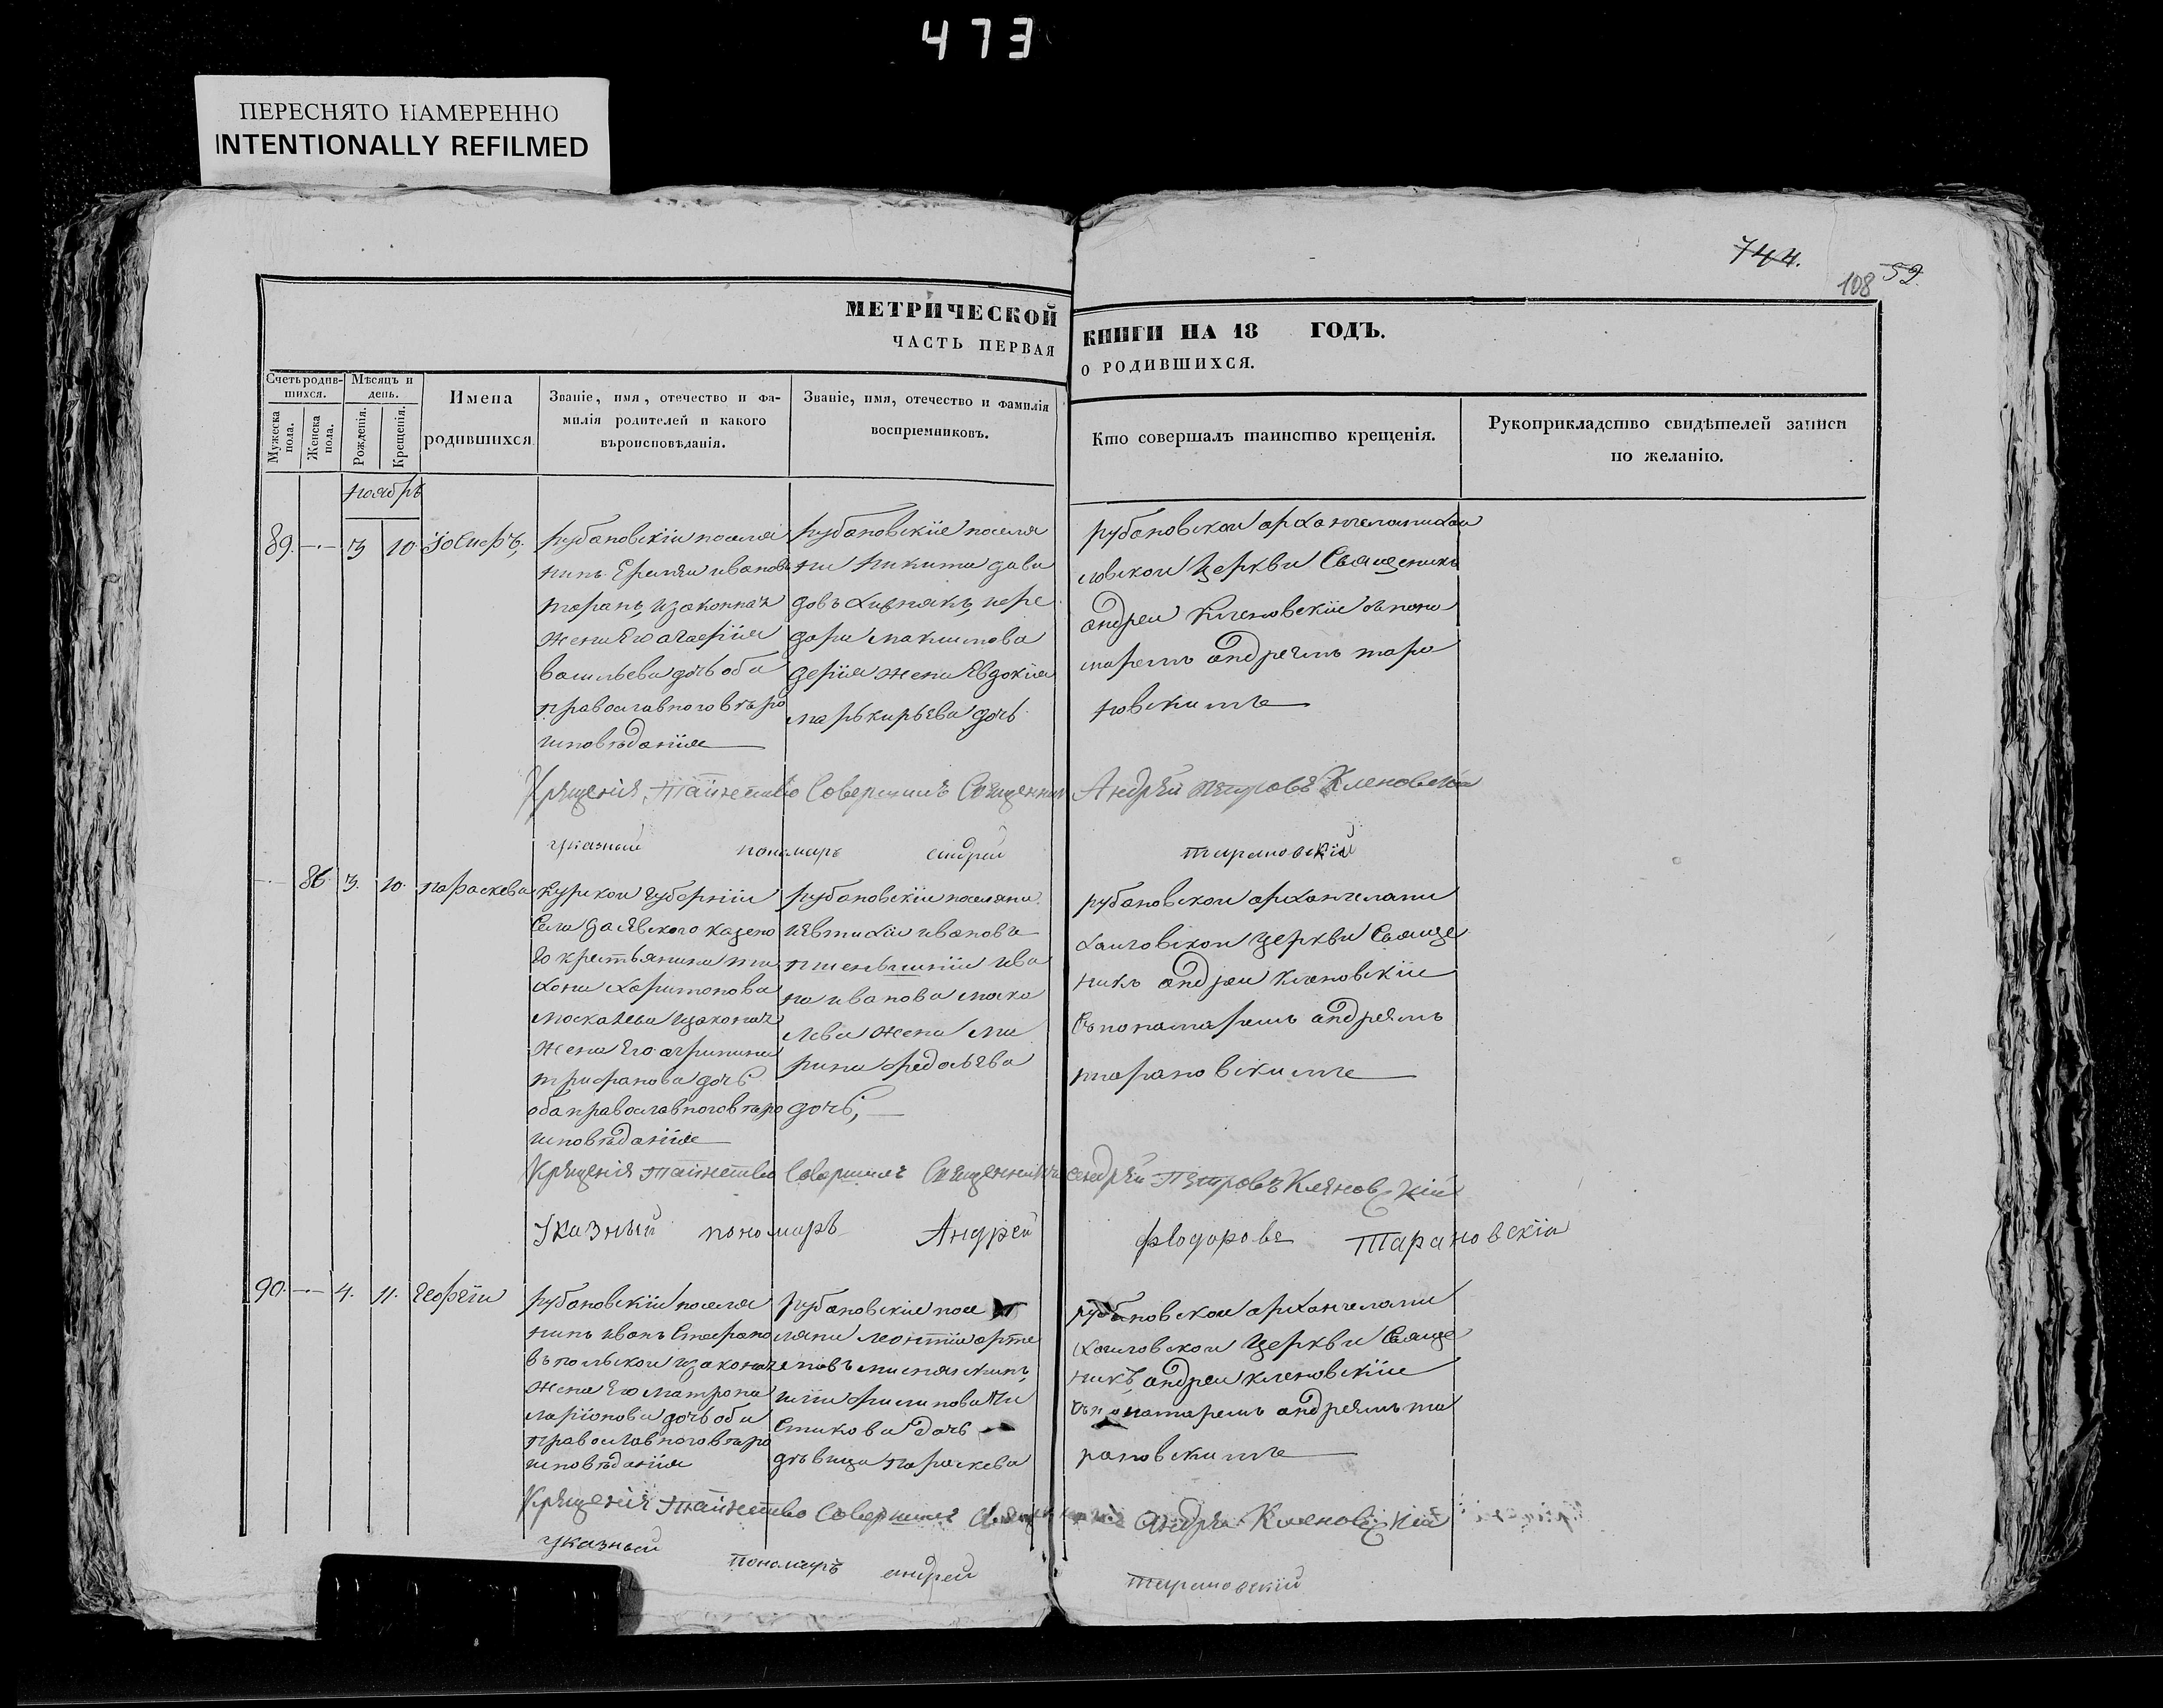 473
ПЕРЕСНЯТО НАМЕРЕННО
INTENTIONALLY REFILMED
744.
108 59.
МЕТРИЧЕСКОЙ
ЧАСТЬ ПЕРВАЯ
КНИГИ НА 18 ГОДЪ.
О РОДИВШИХСЯ.
Счетъ родив-
шихся.
Мужеска пола.
Женска пола.
Мѣсяцъ и
день.
Рожденія.
Крещенія.
Имена
родившихся
Званіе, имя, отечество и фа-
милія родителей и какого
вѣроисповѣданія.
Званіе, имя, отечество и фамилія
воспріемниковъ.
Кто совершалъ таинство крещенія.
Рукоприкладство свидѣтелей записи
по желанію.
ноябрь
89. — 3 10. Іосифъ,
рубановскіи поселя
нинъ Еремѣи иванов
таранъ, изаконная
жена Его агафія
васильева дочь оба
православноговѣро
исповѣданія
рубановскіе поселя
ни никита дави
довъ
дора максимова
жена Евдокія
маркирьева дочь
рубановскои архангеломихаи
ловскои церкви Священикъ
андреи Кленовскіи съ поно
маремъ андреемъ тара
новскимъ
Крещенія Таинство Совершилъ Священникъ Андрей Петровъ Кленовскій
указный пономарь андрей тарановскій
— 86 3. 10. параскева
Курскои губерніи
Села казено
го крестьянина ти
хона харитонова
москалева изаконая
жена Его агрипина
трифанова дочь
оба православноговѣро
исповѣданія
рубановскіи поселяни
иванова
ива
на иванова моска
лева жена ма
рина федосѣева
дочь,
рубановскои архангеломи
хаиловскои церкви Свяще
никъ андреи кленовскіи
съ понамаремъ андреемъ
тарановскимъ
Крещенія таинство Совершилъ Священникъ андрей Петровъ Кленовскій
Указный пономарь Андрей Фіодоровъ Тарановскій
90. — 4. 11. георгіи
рубановскіи поселя
нинъ иванъ Стефано
въ польскои изаконая
жена Его матрона
ларіонова дочь оба
православноговѣро
исповѣданія
рубановскіе посе
ляни леонтіи арте
мовъ
филипова
дочь
дѣвица параскева
рубановскои архангеломи
хаиловскои церкви Свяще
никъ, андреи кленовскіи
съ понамаремъ андреемъ та
рановскимъ
Крещенія таинство Совершилъ Священникъ Андрей Кленовскій
указный пономарь андрей тарановскій